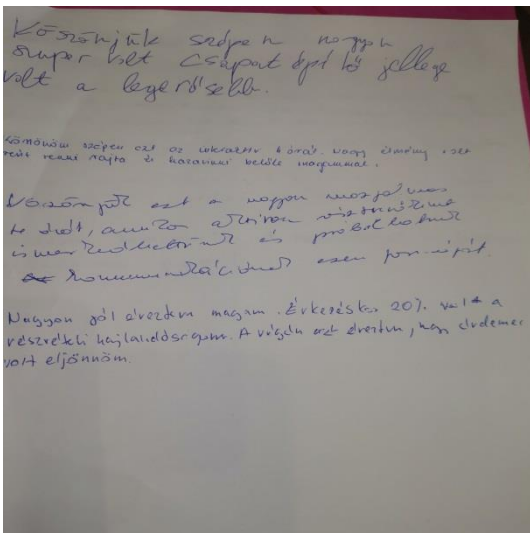 Köszönjük szépen nagyon
szuper volt Csapat építő jellege
volt a legerősebb.
Köszönöm szépen ezt az interaktív órát. Nagy élmény volt
részt venni rajta és hazavinni belőle magammal.
Köszönjük ezt a nagyon
órát, amin
ismerkedhettünk és próbálhattuk
kommunikációnak ezen formáját.
Nagyon jól éreztem magam. Érkezéskor 20% volt a
részvételi hajlandóságom. A végén azt éreztem, hogy érdemes
volt eljönnöm.